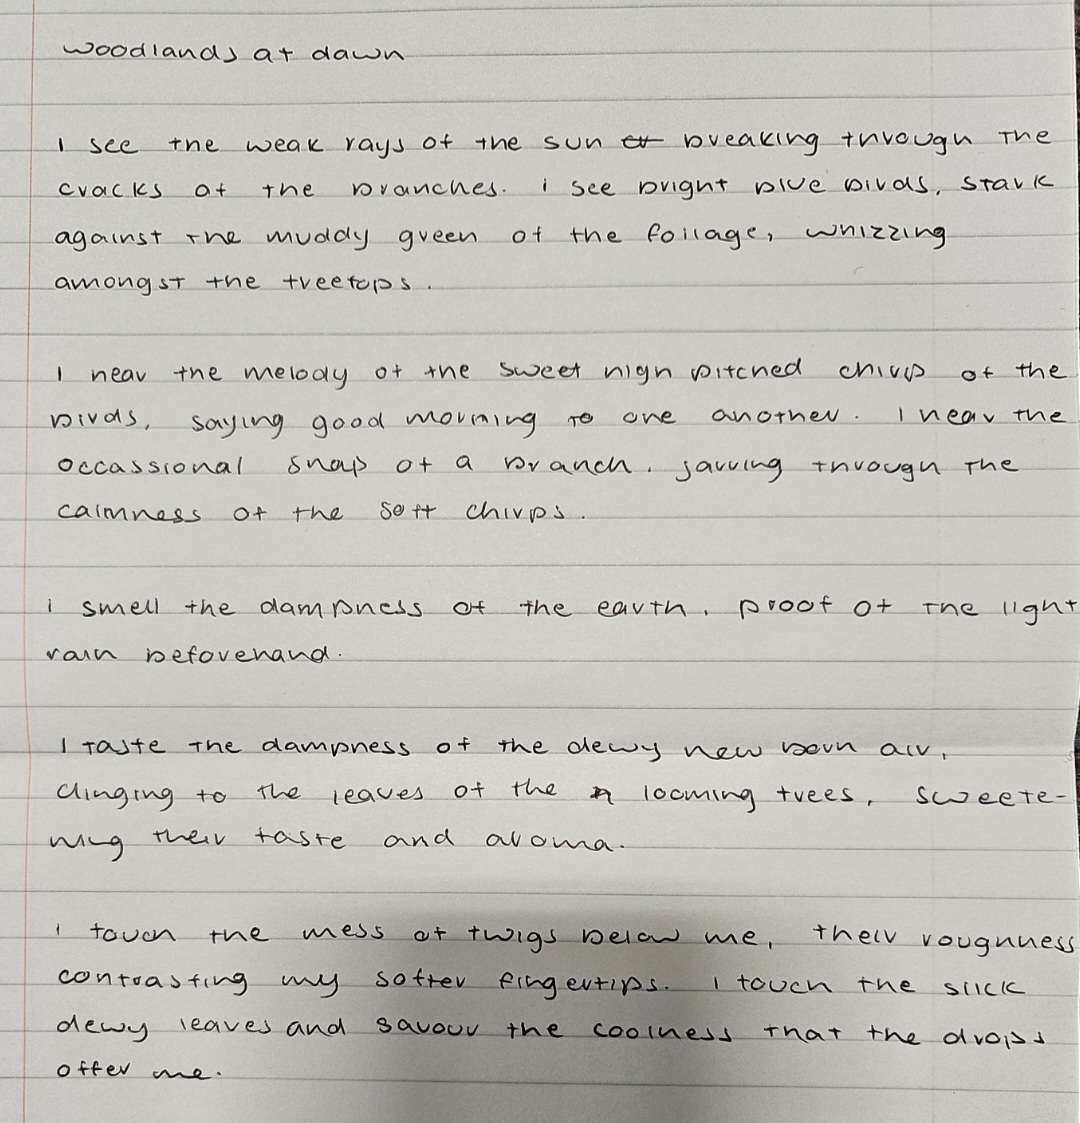 woodlands at dawn
I see the weak rays of the sun breaking through the
cracks of the branches. i see bright blue birds, stark
against the muddy green of the foilage, whizzing
amongst the treetops.
I hear the melody of the sweet high pitched chirp of the
birds, saying good morning to one another. I hear the
occassional snap of a branch, jarring through the
calmness of the soft chirps.
i smell the dampness of the earth, proof of the light
rain beforehand.
I taste the dampness of the dewy new born air,
clinging to the leaves of the looming trees, sweete-
ning their taste and aroma.
I touch the mess of twigs below me, their roughness
contrasting my softer fingertips. I touch the slick
dewy leaves and savour the coolness that the drops
offer me.